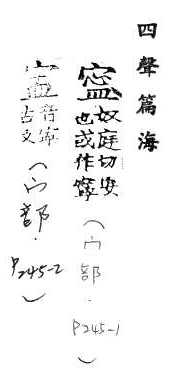 四聲篇海
寍奴庭切安
也或作寧
(宀部.P245-1)
音寧
古文
(宀部.P245-2)